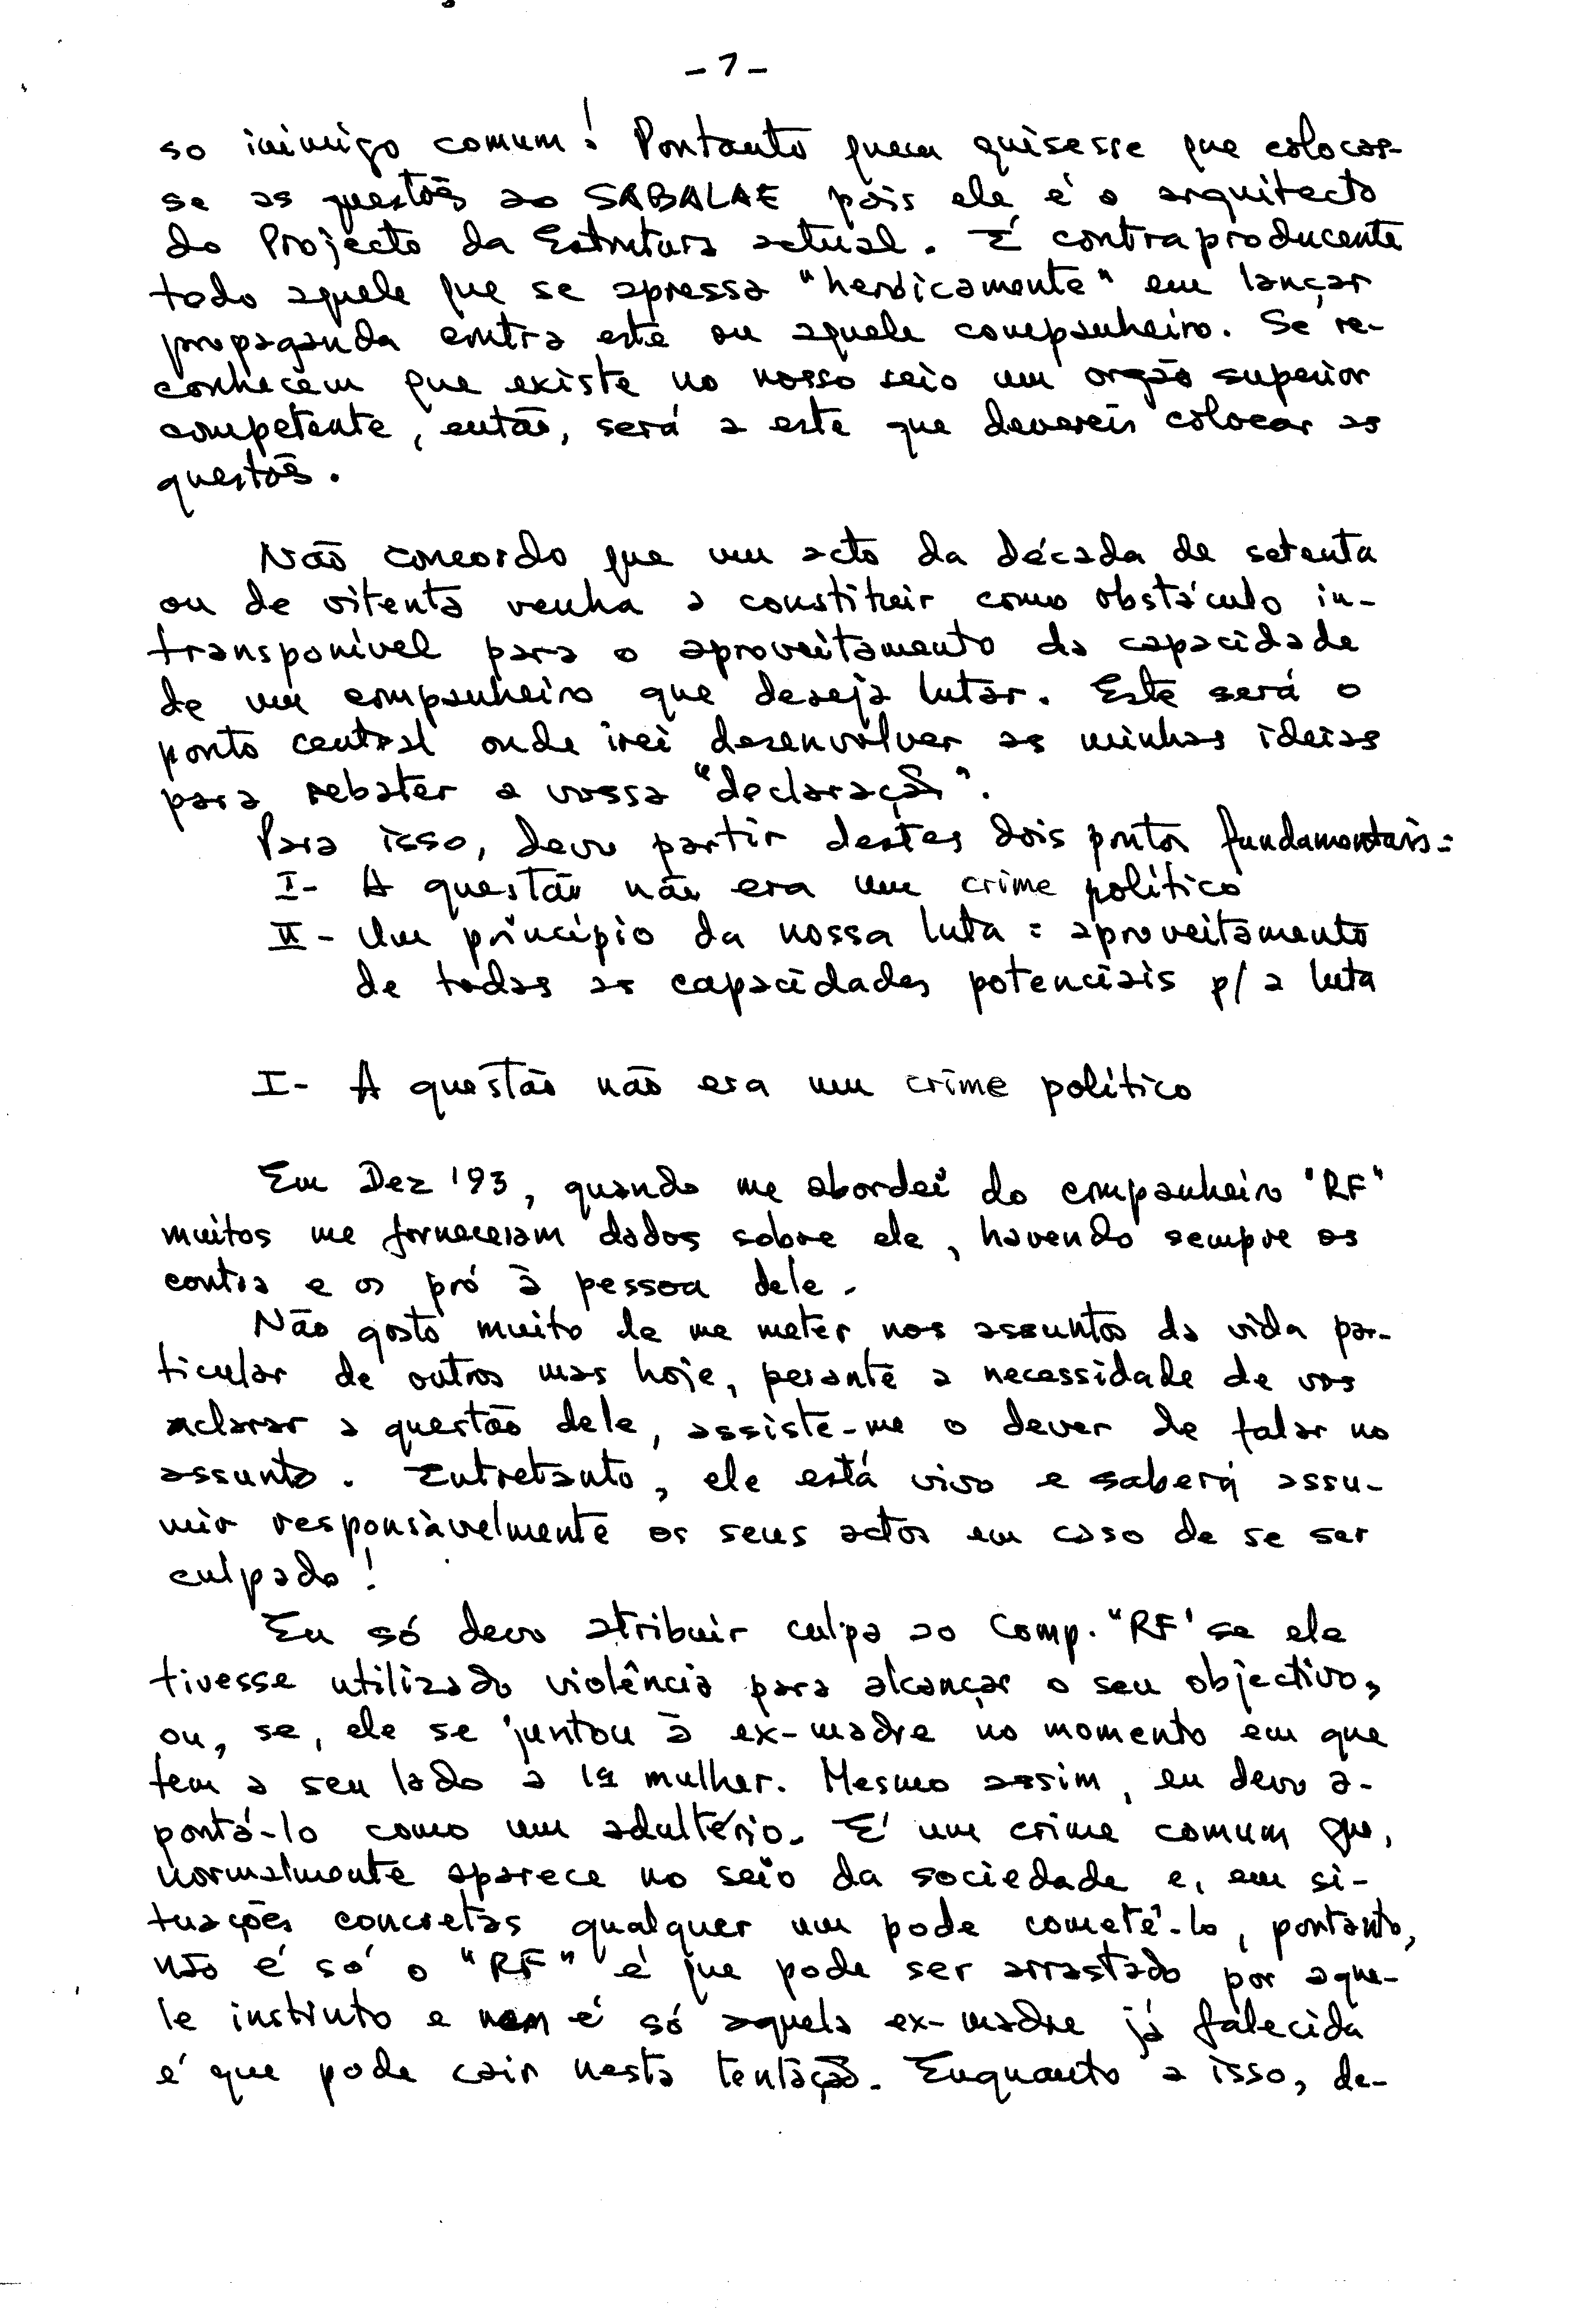 - 7 -
so inimigo comum! Portanto quem quisesse que colocas-
se as questões ao SABALAE pois ele é o arquitecto
do Projecto da Estrutura actual. É contraproducente
todo aquele que se apressa "heroicamente" em lançar
propaganda contra este ou aquele companheiro. Se re-
conhecem que existe no nosso seio um orgão superior
competente, então, será a este que devereis colocar as
questões.
Não concordo que um acto da década de setenta
ou de oitenta venha a constituir como obstáculo in-
transponível para o aproveitamento da capacidade
de um companheiro que deseja lutar. Este será o
ponto central onde irei desenvolver as minhas ideias
para rebater a vossa "declaração".
Para isso, devo partir destes dois pontos fundamentais:
I- A questão não era um crime político
II- Um princípio da nossa luta: aproveitamento
de todas as capacidades potenciais p/ a luta
I- A questão não era um crime político
Em Dez '93, quando me abordei do companheiro "RF"
muitos me forneceram dados sobre ele, havendo sempre os
contra e os pró à pessoa dele.
Não gosto muito de me meter nos assuntos da vida par-
ticular de outros mas hoje, perante a necessidade de vos
aclarar a questão dele, assiste-me o dever de falar no
assunto. Entretanto, ele está vivo e saberá assu-
mir responsàvelmente os seus actos em caso de se ser
culpado!
Eu só devo atribuir culpa ao Comp. "RF" se ele
tivesse utilizado violência para alcançar o seu objectivo,
ou, se, ele se juntou à ex-madre no momento em que
tem a seu lado a 1ª mulher. Mesmo assim, eu devo a-
pontá-lo como um adultério. É um crime comum que,
normalmente aparece no seio da sociedade e, em si-
tuações concretas qualquer um pode cometê-lo, portanto,
não é só o "RF" é que pode ser arrastado por aque-
le instinto e nem é só aquela ex-madre já falecida
é que pode cair nesta tentação. Enquanto a isso, de-